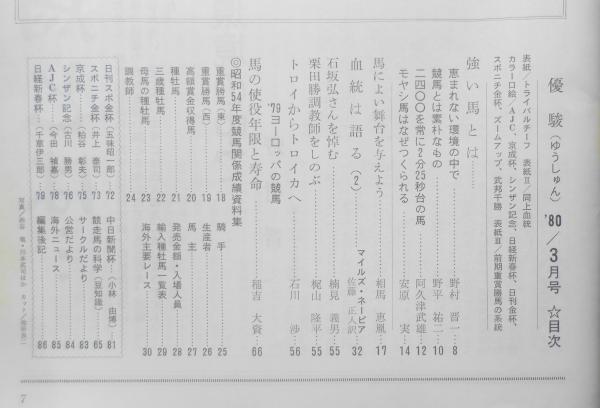 優駿（ゆうしゅん）'80／3月号 ☆目次
表紙／トライバルチーフ 表紙Ⅱ／同上血統
カラー口絵／AJC、京成杯、シンザン記念、日経新春杯、日刊金杯、
スポニチ金杯、ズームアップ、武邦千勝 表紙Ⅲ／前期重賞勝馬の系統
強い馬とは……
恵まれない環境の中で……野村 晋一…8
競馬とは素朴なもの……野平 祐二…10
二四〇〇を常に2分25秒台の馬……阿久津武雄…12
モヤシ馬はなぜつくられる……安原 実…14
馬によい舞台を与えよう……相馬 恵胤…17
血統は語る（2）……マイルズ・ネーピア 佐藤 正人訳…32
石坂弘さんを悼む……楠見 義男…55
栗田勝調教師をしのぶ……梶山 隆平…55
トロイからトロイカへ……石川 渉…56
'79ヨーロッパの競馬
馬の使役年限と寿命……稲吉 大資…66
◎昭和54年度競馬関係成績資料集
重賞勝馬（東）……18
重賞勝馬（西）……19
高額賞金収得馬……20
種牡馬……21
三歳種牡馬……22
母馬の種牡馬……23
調教師……24
騎手……25
生産者……26
馬主……27
発売金額・入場人員……28
輸入種牡馬一覧表……29
海外主要レース……30
日刊スポ金杯（五味昭一郎）…72
スポニチ金杯（井上 泰司）…73
京成杯……（粕谷 彰夫）…75
シンザン記念（古川 勝男）…76
AJC杯……（今田 禎嘉）…78
日経新春杯…（千草伊三郎）…79
中日新聞杯（小林 由博）81
競走馬の科学（豆知識）…65
サークルだより……83
公営だより……84
海外ニュース……85
編集後記……86
7